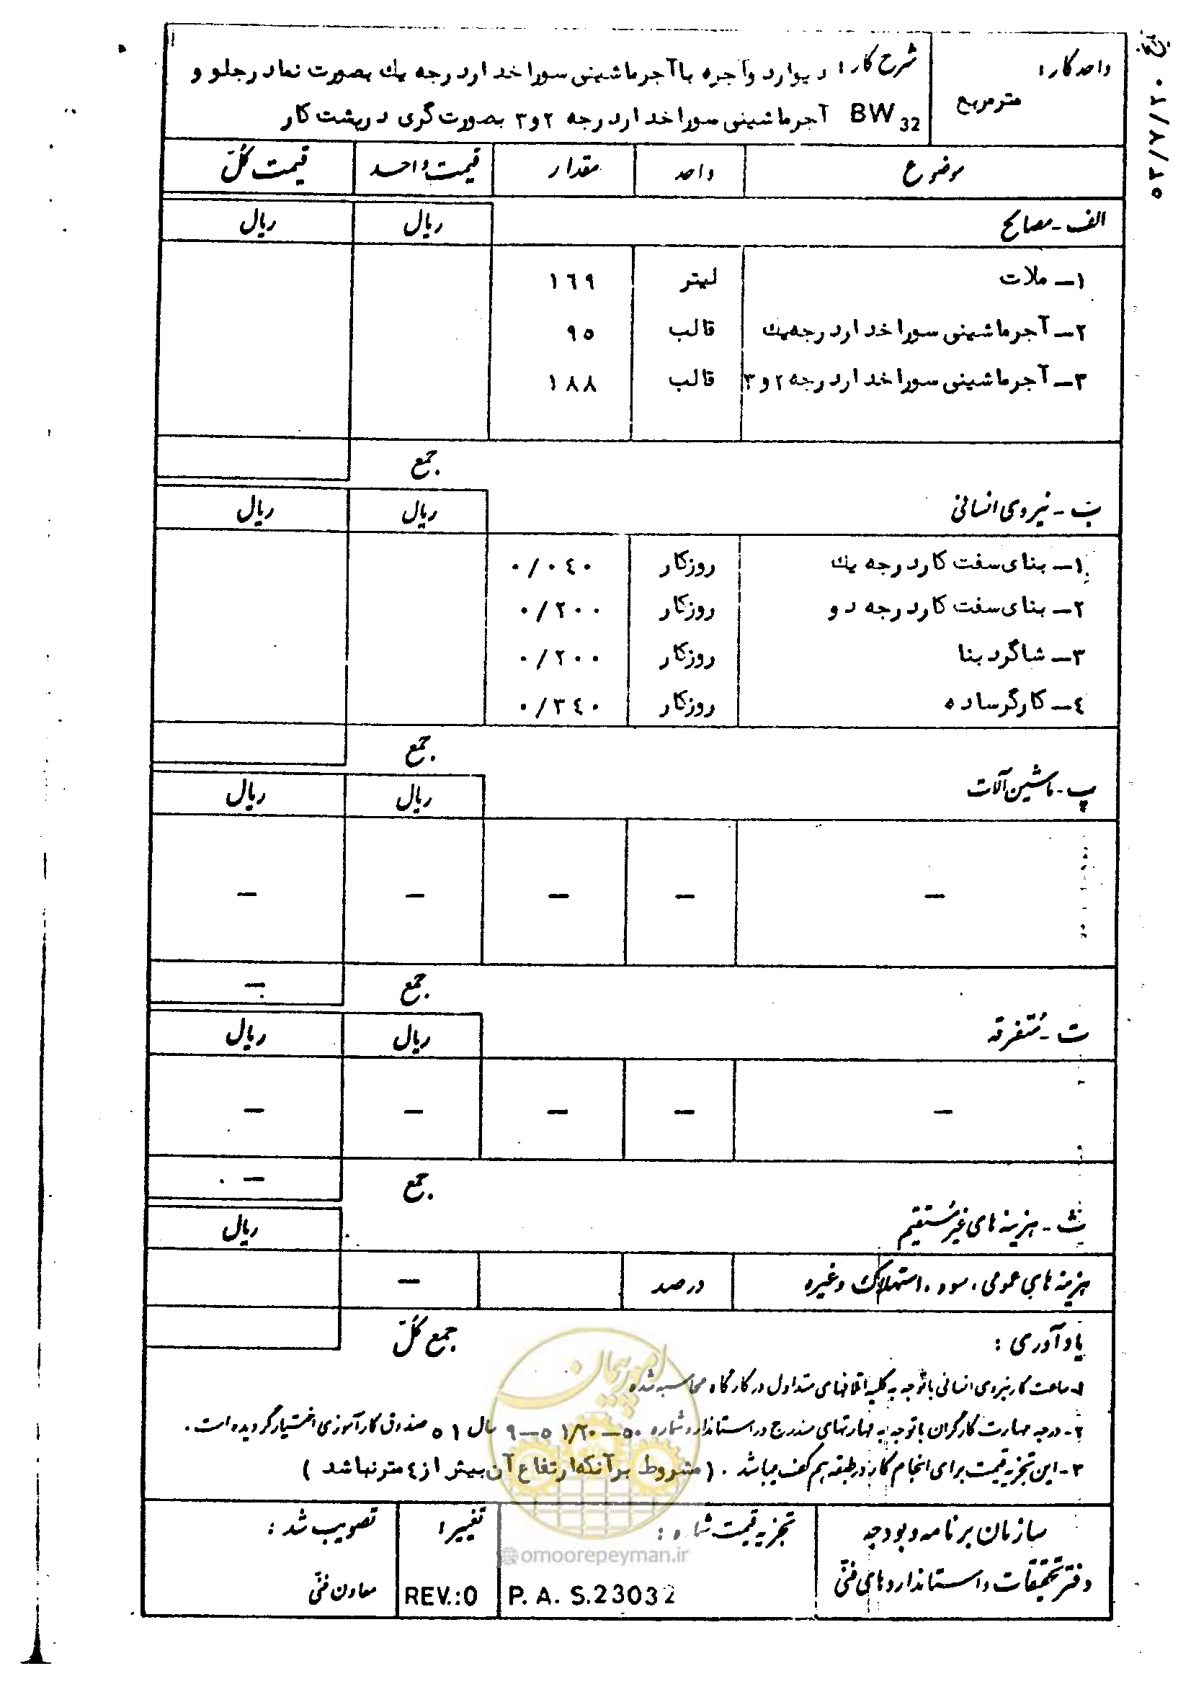 ۵۲/۷/۳۰
واحد کار :
مترمربع
شرح کار : دیوار دوآجره با آجرماشینی سوراخدار درجه یك بصورت نما در جلو و
BW 32 آجرماشینی سوراخدار درجه ۲و۳ بصورت گری در پشت کار
موضوع واحد مقدار قیمت واحد قیمت کلّ
الف - مصالح ریال ریال
۱- ملات لیتر ۱٦۹
۲- آجرماشینی سوراخدار درجه یك قالب ۹۵
۳- آجرماشینی سوراخدار درجه ۲و۳ قالب ۱۸۸
جمع
ب - نیروی انسانی ریال ریال
۱- بنای سفت کار درجه یك روزکار ۰/۰٤۰
۲- بنای سفت کار درجه دو روزکار ۰/۲۰۰
۳- شاگرد بنا روزکار ۰/۲۰۰
٤- کارگر ساده روزکار ۰/۳٤۰
جمع
پ - ماشین آلات ریال ریال
— — — — —
جمع —
ت - مُتفرقه ریال ریال
— — — — —
جمع —
ث - هزینه های غیرمُستقیم ریال
هزینه های عمومی ، سود ، استهلاک وغیره درصد —
جمع کُلّ
یادآوری :
۱- ساعت کار نیروی انسانی با توجه به کلیه اتلافهای متداول در کارگاه محاسبه شده
۲- درجه مهارت کارگران با توجه به مهارتهای مندرج در استاندارد شماره ۵۰-۱/۲۰ ۵-۹ سال ۵۱ صندوق کارآموزی اختیار گردیده است .
۳- این تجزیه قیمت برای انجام کار در طبقه هم کف میباشد . ( مشروط برآنکه ارتفاع آن بیش از ٤ متر نباشد )
امور پیمان
@omoorepeyman.ir
سازمان برنامه و بودجه
دفتر تحقیقات و استانداردهای فنّی
تجزیه قیمت شماره :
P. A. S.23032
تغییر :
REV.:0
تصویب شد :
معاون فنّی